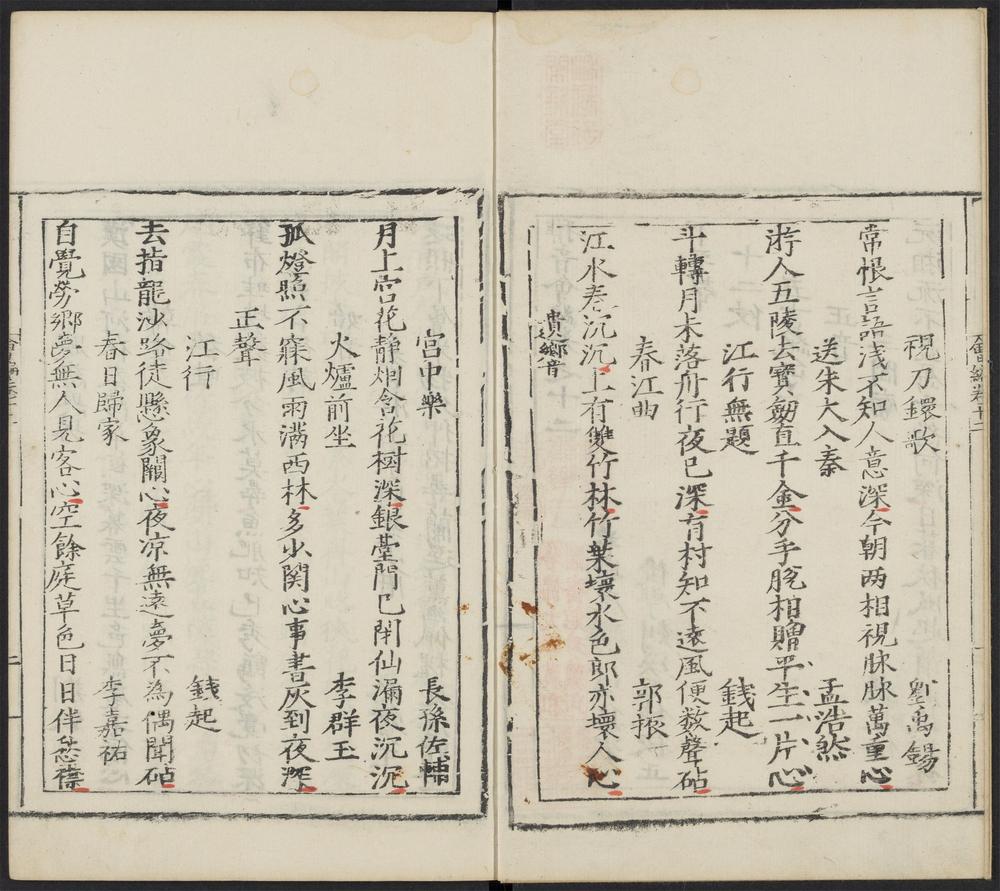 視刀鐶歌 劉禹錫
常恨言語浅不知人意深今朝两相視脉脉萬重心
送朱大入秦 孟浩然
游人五陵去寶劒直千金分手脫相贈平生一片心
江行無題 錢起
斗轉月未落舟行夜已深有村知不遠風便数聲砧
春江曲 郭振
江水春沉沉上有雙竹林竹葉壞水色郎亦壞人心
遺鄉音
宮中樂 長孫佐輔
月上宫花静烟含花樹深銀臺門已閉仙漏夜沉沉
火爐前坐 李群玉
孤燈照不寐風雨满西林多少関心事書灰到夜深
正聲
江行 錢起
去指龍沙路徒懸象闕心夜凉無遠夢不為偶聞砧
春日歸家 李嘉祐
自覺勞鄉夢無人見客心空餘庭草色日日伴愁襟